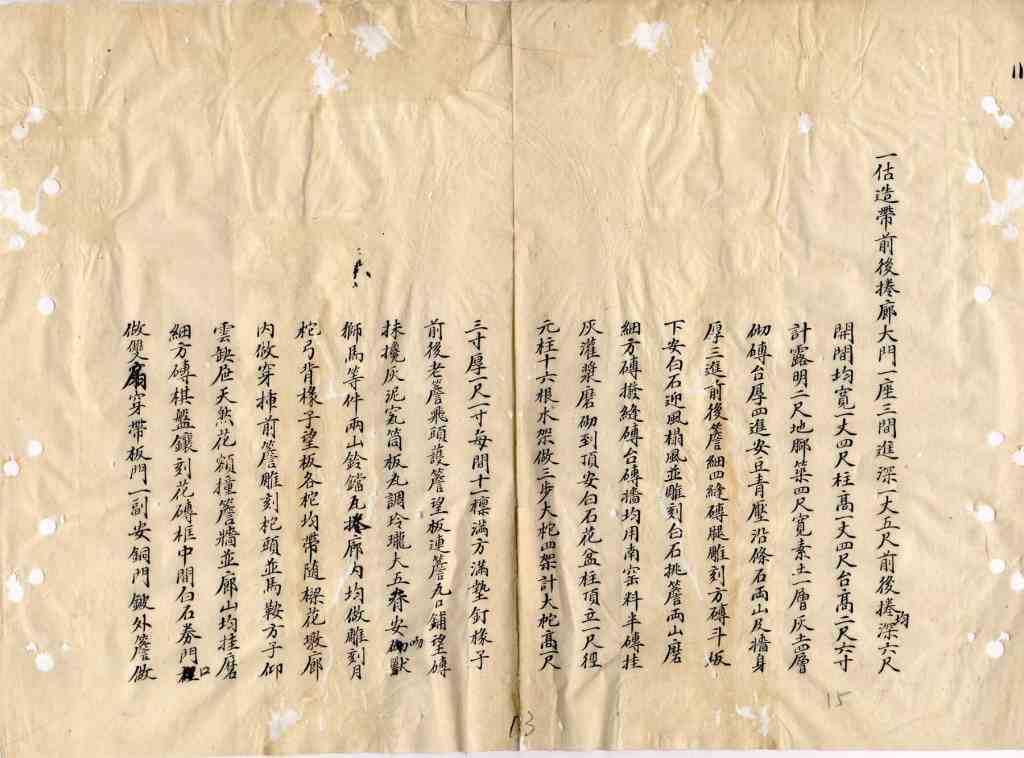 一估造帶前後捲廊大門一座三間進深一丈五尺前後捲均深六尺
開間均寬一丈四尺柱高一丈四尺台高二尺六寸
計露明二尺地腳築四尺寬素土一層灰土四層
砌磚台厚四進安豆青壓沿條石両山及牆身
厚三進前後簷細四縫磚腿雕刻方磚斗板
下安白石迎風榻風並雕刻白石挑簷両山磨
細方磚撥縫磚台磚牆均用南窑料半磚挂
灰灌漿磨砌到頂安白石花盆柱頂立一尺徑
元柱十六根水架做三步大柁四架計大柁高一尺
三寸厚一尺一寸每間十一檩滿方滿墊釘椽子
前後老簷飛頭護簷望板連簷瓦口鋪望磚
抹攙灰泥窊筒板瓦調玲瓏大五脊安吻獸
獅馬等件両山鈴鐺瓦捲廊內均做雕刻月
柁弓背椽子望板各柁均帶随樑花墩廊
內做穿揷前簷雕刻柁頭並馬鞍方子仰
雲缺庒天然花額撞簷牆並廊山均挂磨
細方磚棋盤鑲刻花磚框中間白石券門口
做雙扇穿帶板門一副安銅門鈸外簷做
13
15
11